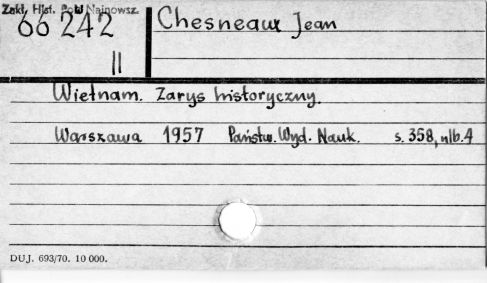 Zakł. Hist. Pol. Najnowsz.
66 242
II
Chesneaux Jean
Wietnam. Zarys historyczny.
Warszawa 1957 Państw. Wyd. Nauk. s. 358, nlb. 4
DUJ. 693/70. 10 000.